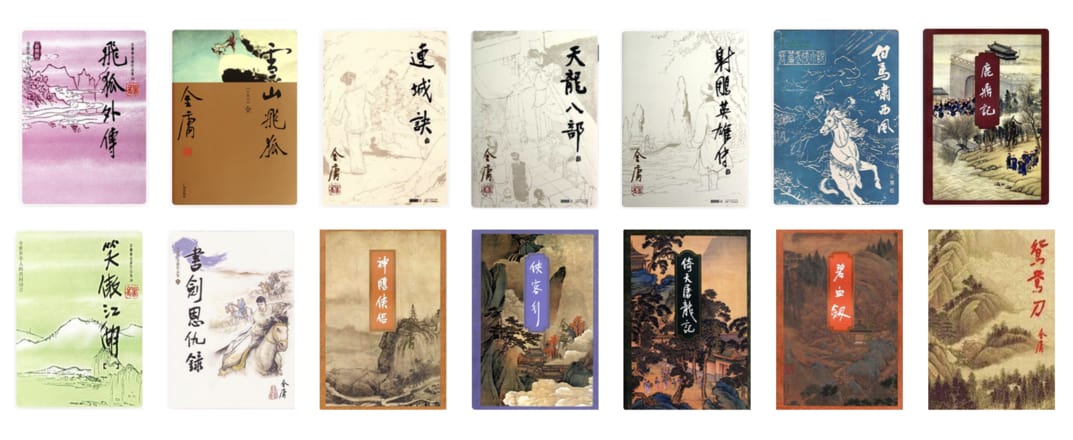 飛狐外傳
雪山飛狐
金庸
連城訣
金庸
天龍八部
金庸
射鵰英雄傳
金庸
白馬嘯西風
鹿鼎記
笑傲江湖
書劍恩仇録
金庸
神鵰俠侶
俠客行
倚天屠龍記
碧血劍
鴛鴦刀
金庸